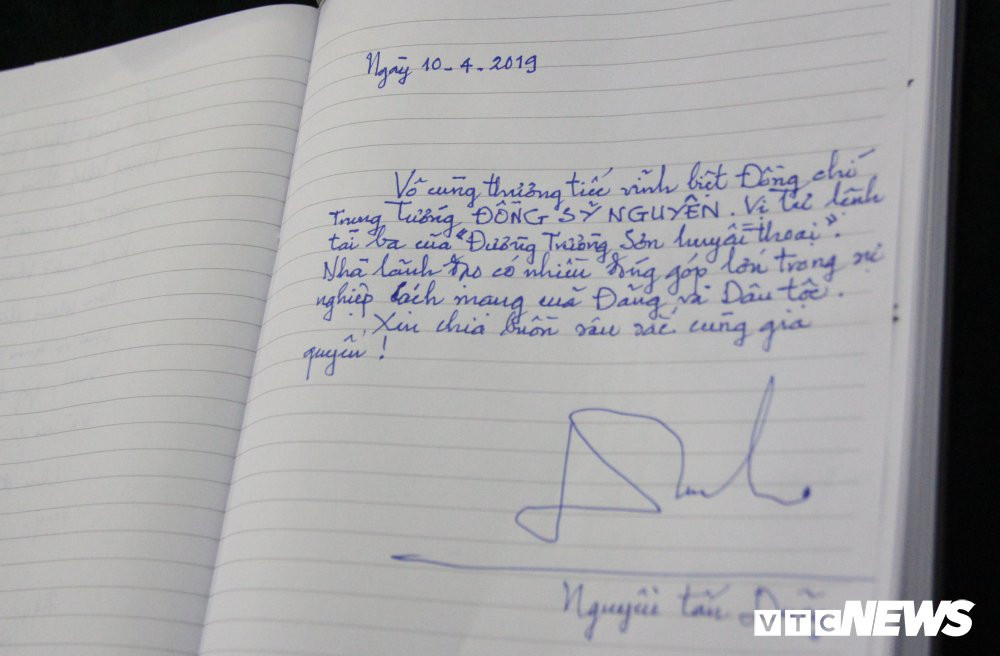 Ngày 10-4-2019
Vô cùng thương tiếc vĩnh biệt Đồng chí
Trung Tướng ĐỒNG SỸ NGUYÊN. Vị tư lệnh
tài ba của "Đường Trường Sơn huyền thoại".
Nhà lãnh đạo có nhiều đóng góp lớn trong sự
nghiệp cách mạng của Đảng và Dân tộc.
Xin chia buồn sâu sắc cùng gia
quyến!
Nguyễn tấn
VTC NEWS